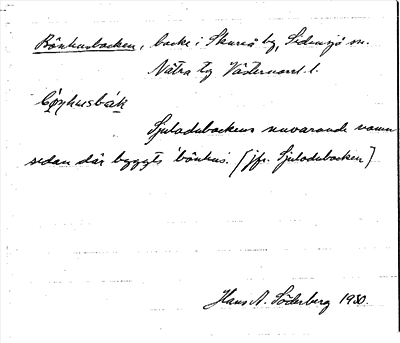 Bönhusbacken, backe i Skureå by, Sidensjö sn.
Nätra tg Västernorrl. l.
Sjuladubackens nuvarande namn
sedan där byggts bönhus. [jfr. Sjuladubacken]
Hans A. Söderberg 1930.